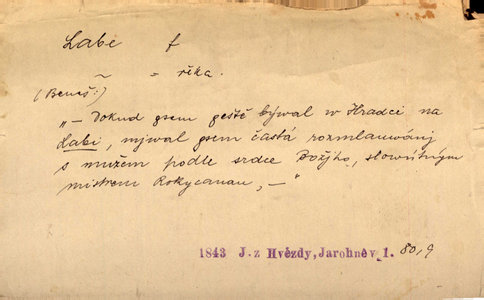 Labe f
~ = řeka.
(Beneš:)
„— Dokud gsem geště býwal w Hradci na
Labi, mjwal gsem častá rozmlauwánj
s mužem podle srdce Božjho, slowútným
mistrem Rokycanau, —"
1843 J. z Hvězdy, Jarohněv 1. 80,9